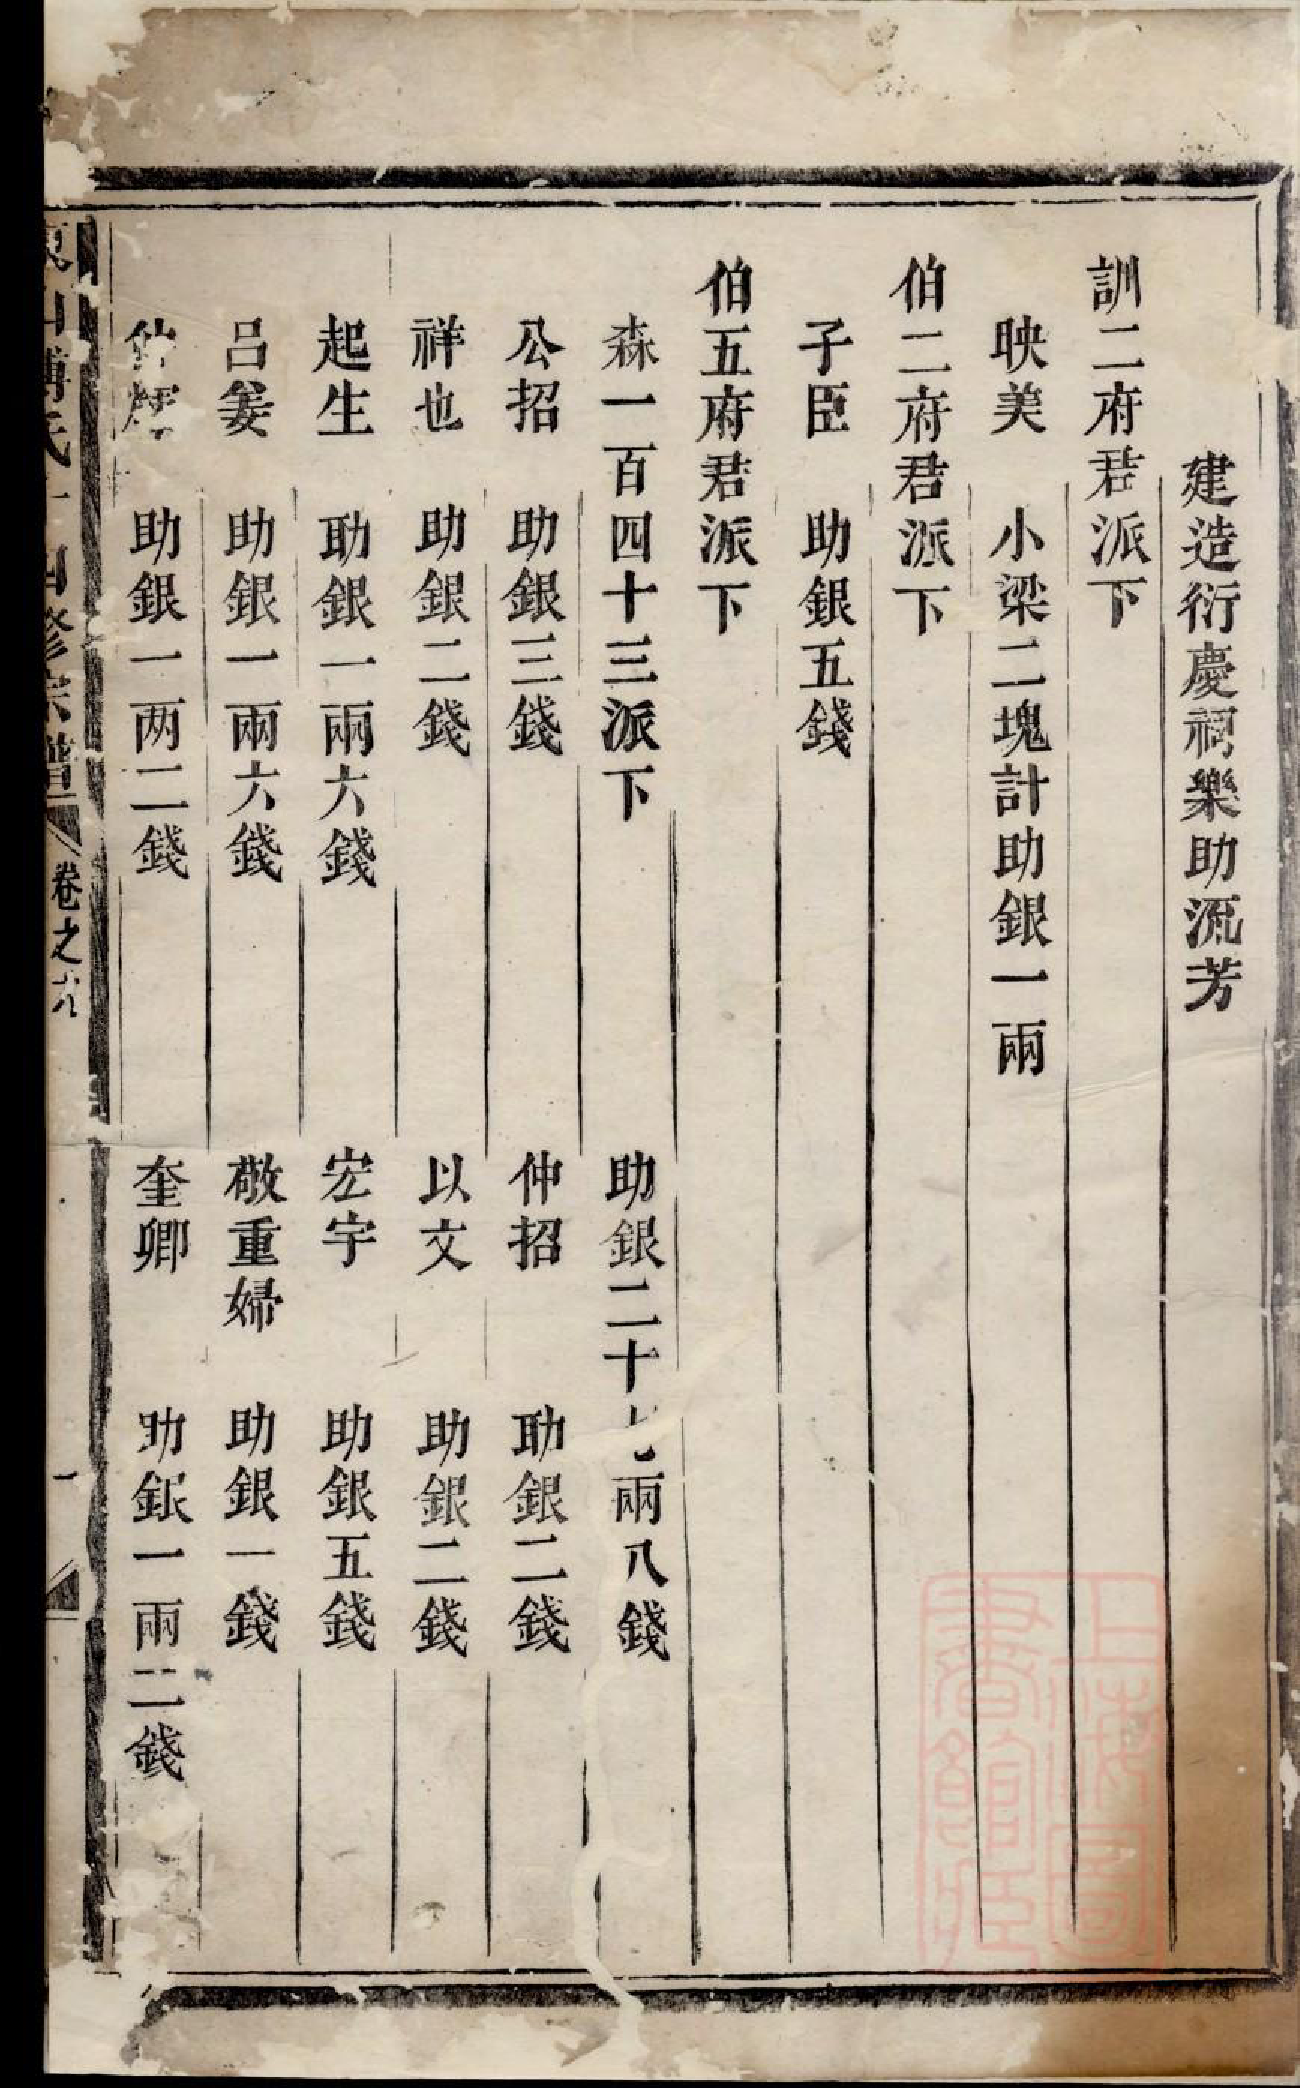 建造衍慶祠樂助流芳
訓二府君派下
映美　小梁二塊計助銀一兩
伯二府君派下
子臣　助銀五錢
伯五府君派下
森一百四十三派下　助銀二十七兩八錢
公招　助銀三錢　仲招　助銀二錢
祥也　助銀二錢　以文　助銀二錢
起生　助銀一兩六錢　宏宇　助銀五錢
呂姜　助銀一兩六錢　敬重婦　助銀一錢
助銀一两二錢　奎卿　助銀一兩二錢
東山傅氏十四修宗譜　卷之六　一
上海圖書館藏